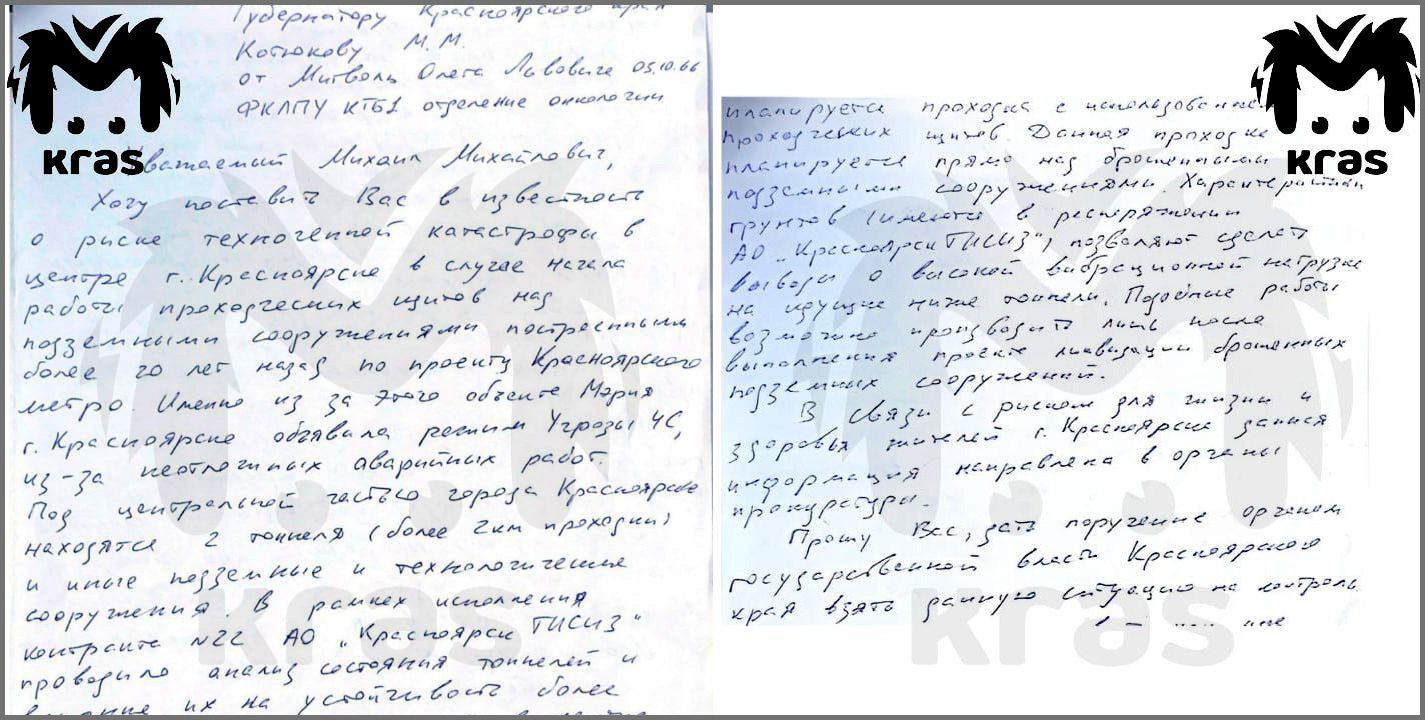 kras
Губернатору Красноярского края
Котюкову М.М.
от Митволь Олега Львовича 05.10.66
ФКЛПУ КТБ1 отделение онкологии
Уважаемый Михаил Михайлович,
Хочу поставить Вас в известность
о риске техногенной катастрофы в
центре г. Красноярска в случае начала
работы проходческих щитов над
подземными сооружениями построенными
более 20 лет назад по проекту Красноярского
метро. Именно из за этого объекта Мэрия
г. Красноярска объявила режим Угрозы ЧС,
из-за неотложных аварийных работ.
Под центральной частью города Красноярска
находятся 2 тоннеля (более 2км проходки)
и иные подземные и технологические
сооружения. В рамках исполнения
контракта №22 АО „Красноярск ТИСИЗ“
проводило анализ состояния тоннелей и
влияние их на устойчивость более
kras
kras
планируется проходка с использованием
проходческих щитов. Данная проходка
планируется прямо над брошенными
подземными сооружениями. Характеристики
грунтов (имеются в распоряжении
АО „Красноярск ТИСИЗ“) позволяют сделать
выводы о высокой вибрационной нагрузке
на идущие ниже тоннели. Подобные работы
возможно производить лишь после
выполнения проекта ликвидации брошенных
подземных сооружений.
В связи с риском для жизни и
здоровья жителей г. Красноярска данная
информация направлена в органы
прокуратуры.
Прошу Вас, дать поручение органам
государственной власти Красноярского
края взять данную ситуацию на контроль
kras